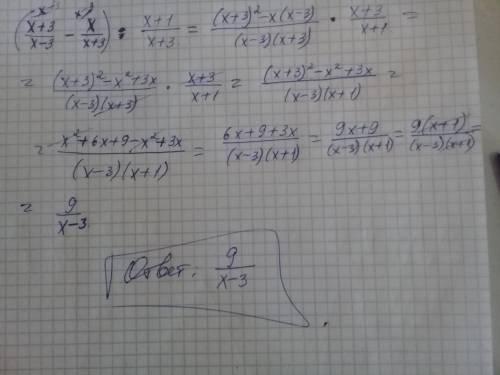 (x+3/x-3 - x/x+3) : x+1/x+3 = (x+3)²-x(x-3)/(x-3)(x+3) · x+3/x+1 =
= (x+3)²-x²+3x/(x-3)(x+3) · x+3/x+1 = (x+3)²-x²+3x/(x-3)(x+1) =
= x²+6x+9-x²+3x/(x-3)(x+1) = 6x+9+3x/(x-3)(x+1) = 9x+9/(x-3)(x+1) = 9(x+1)/(x-3)(x+1) =
= 9/x-3
Ответ: 9/x-3 .